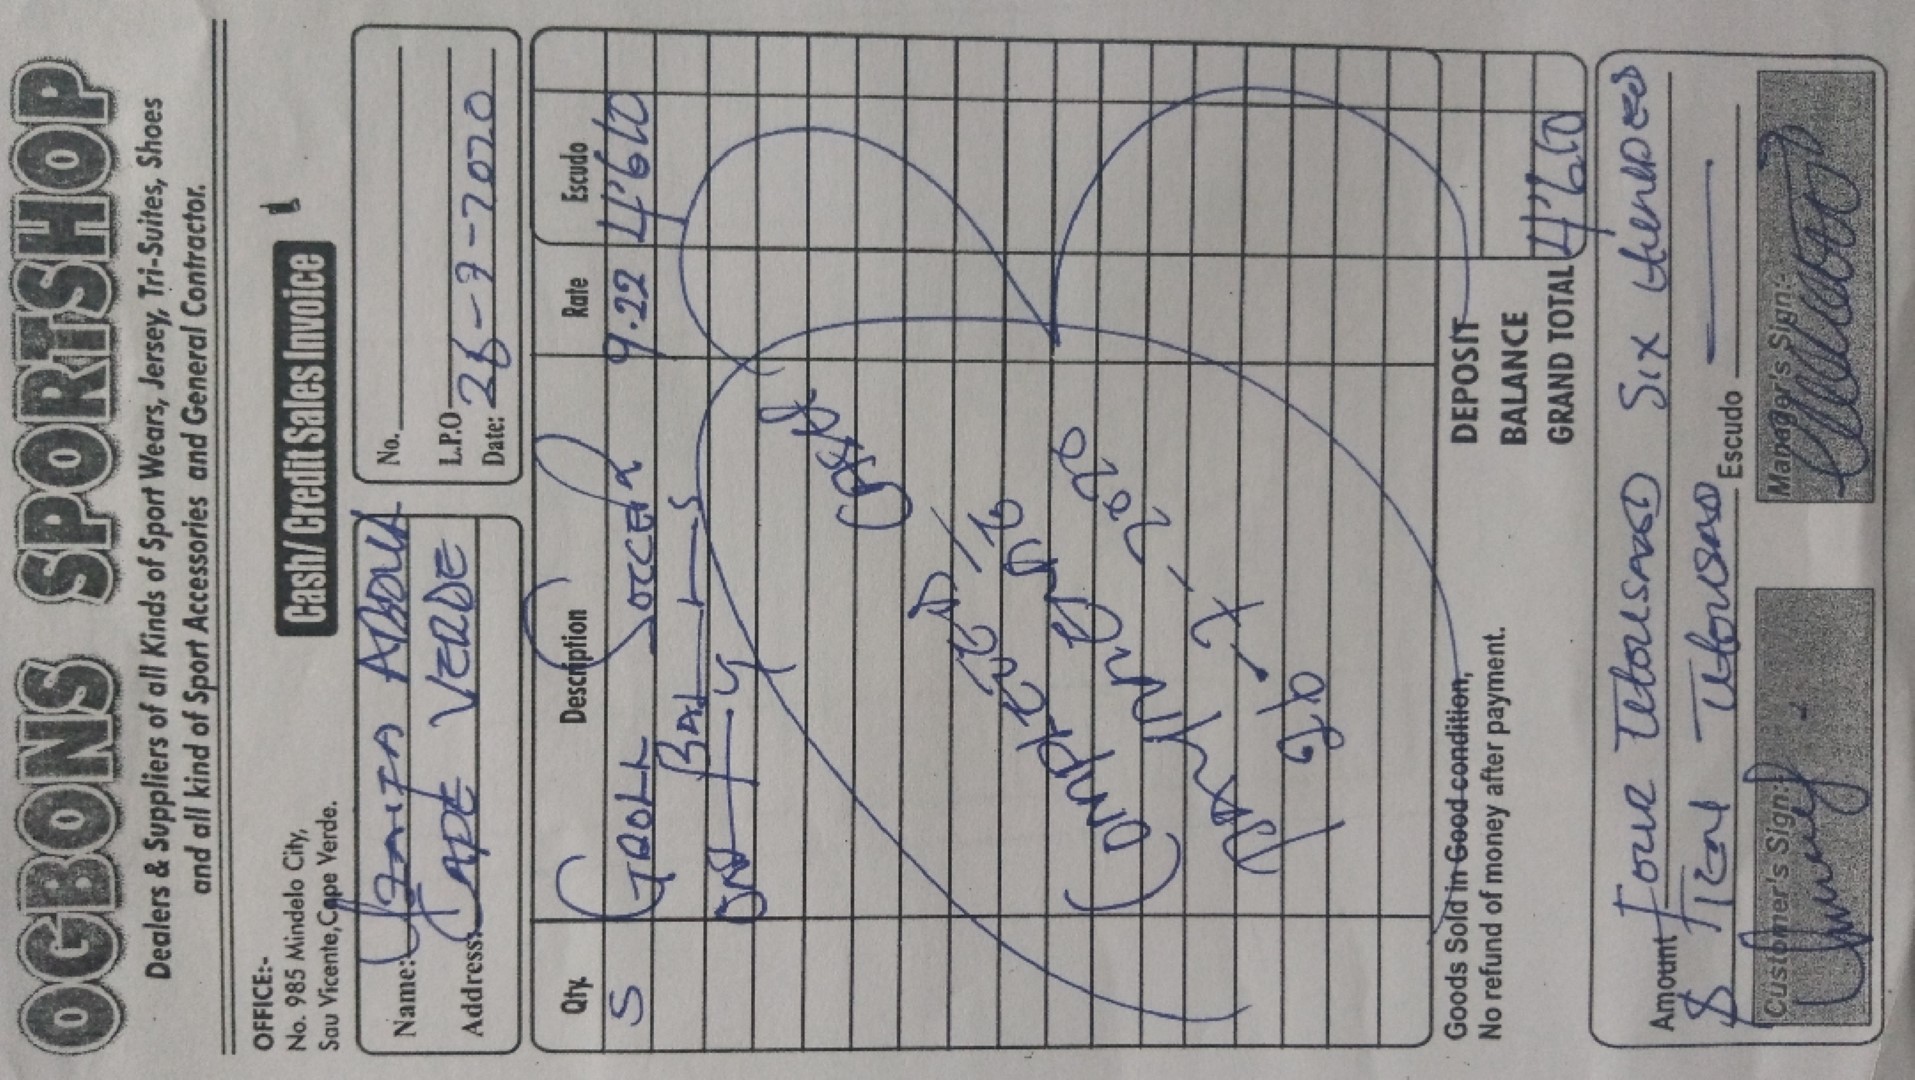 OGBONS SPORTSHOP
Dealers & Suppliers of all Kinds of Sport Wears, Jersey, Tri-Suites, Shoes
and all kind of Sport Accessories and General Contractor.
OFFICE:-
No. 985 Mindelo City,
Sau Vicente, Cape Verde.
Cash/ Credit Sales Invoice
Name: ABDUL
Address: CAPE VERDE
No.
L.P.O
Date: 26-7-2020
Qty. Description Rate Escudo
5 TROLL SOCCER 9.22 4'610
BALLS
ONLY
Cash
Complete
26 - 7 - 2020
Goods Sold in Good condition,
No refund of money after payment.
DEPOSIT
BALANCE
GRAND TOTAL 4'610
Amount Four Thousand Six Hundred
& Ten Thousand Escudo
Customer's Sign:-
Manager's Sign:-